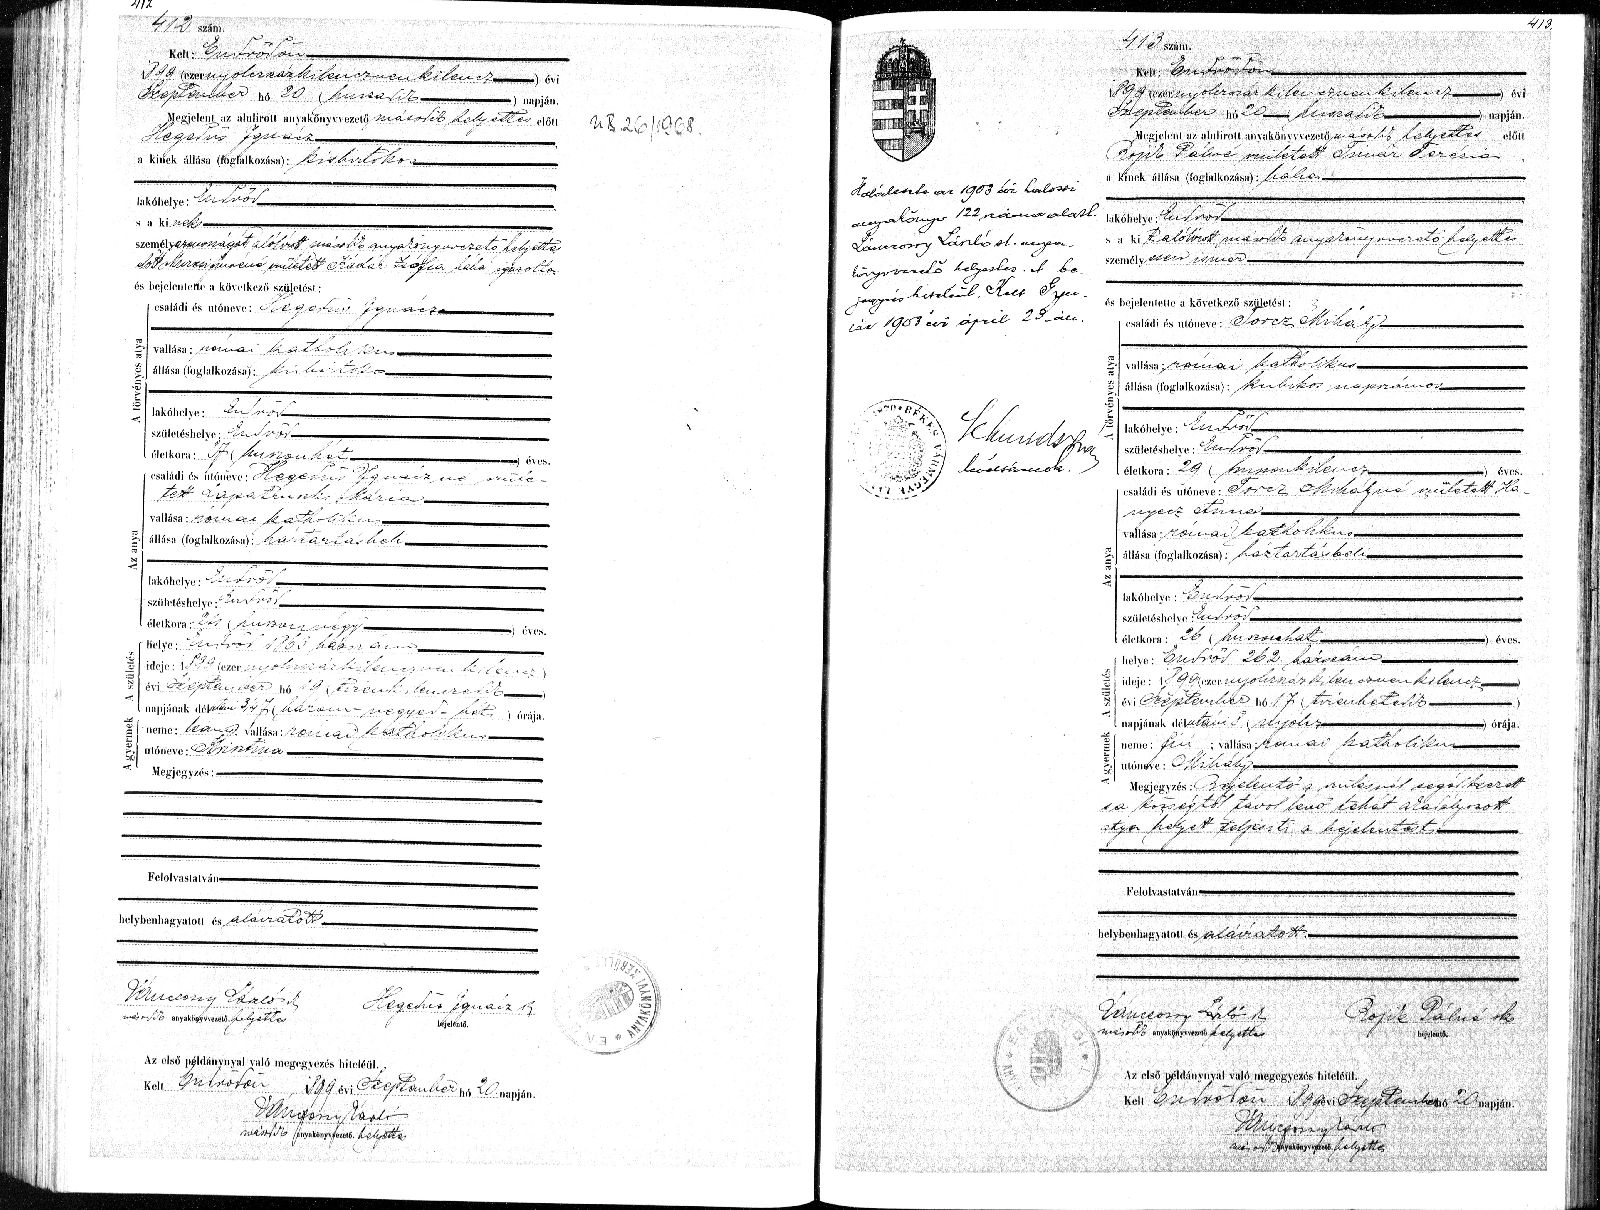 412
412 szám.
Kelt: Endrődön
1899 (ezernyolczszázkilenczvenkilencz) évi
Szeptember hó 20 (huszadik) napján.
Megjelent az alulirott anyakönyvvezető második helyettes előtt
Hegedüs Ignácz
a kinek állása (foglalkozása): kisbirtokos
lakóhelye: Endrőd
s a kinek
személyazonosságát alólirott második anyakönyvvezető helyettes
született Kádár Zsófia bába igazolta
és bejelentette a következő születést:
A törvényes atya
családi és utóneve: Hegedüs Ignácz
vallása: római katholikus
állása (foglalkozása): kisbirtokos
lakóhelye: Endrőd
születéshelye: Endrőd
életkora: 27 (huszonhét) éves.
Az anya
családi és utóneve: Hegedüs Ignáczné szüle-
tett Mária
vallása: római katholikus
állása (foglalkozása): háztartásbeli
lakóhelye: Endrőd
születéshelye: Endrőd
életkora: 24 (huszonnégy) éves.
A születés
helye: Endrőd házszám
ideje: 1899 (ezernyolczszázkilenczvenkilencz)
évi Szeptember hó 19 (tizenkilenczedik)
napjának délután 3/47 (három negyed hét) órája.
A gyermek
neme: leány; vallása: római katholikus
utóneve: Krisztina
Megjegyzés:
Felolvastatván
helybenhagyatott és aláiratott
Vánczony László s. k.
második anyakönyvvezető helyettes
Hegedüs Ignácz s. k.
bejelentő.
Az első példánynyal való megegyezés hiteléül.
Kelt Endrődön 1899 évi Szeptember hó 20 napján.
Vánczony László
második anyakönyvvezető helyettes
UB.26/1968.
413
413 szám.
Kelt: Endrődön
1899 (ezernyolczszázkilenczvenkilencz) évi
Szeptember hó 20 (huszadik) napján.
Megjelent az alulirott anyakönyvvezető második helyettes előtt
Rojik Pálné született Timár Terézia
a kinek állása (foglalkozása): bába
lakóhelye: Endrőd
s a kit alólirott második anyakönyvvezető helyettes
személyesen ismer
és bejelentette a következő születést:
A törvényes atya
családi és utóneve: Torcz Mihály
vallása: római katholikus
állása (foglalkozása): kubikos napszámos
lakóhelye: Endrőd
születéshelye: Endrőd
életkora: 29 (huszonkilencz) éves.
Az anya
családi és utóneve: Torcz Mihályné született Ha-
nyecz Anna
vallása: római katholikus
állása (foglalkozása): háztartásbeli
lakóhelye: Endrőd
születéshelye: Endrőd
életkora: 26 (huszonhat) éves.
A születés
helye: Endrőd 262 házszám
ideje: 1899 (ezernyolczszázkilenczvenkilencz)
évi Szeptember hó 17 (tizenhetedik)
napjának délutáni 8 (nyolcz) órája.
A gyermek
neme: fiú; vallása: római katholikus
utóneve: Mihály
Megjegyzés: Bejelentő a szülésnél segédkezett
s a községtől távol levő tehát akadályozott
atya helyett teljesiti a bejelentést
Felolvastatván
helybenhagyatott és aláiratott.
Vánczony László s. k.
második anyakönyvvezető helyettes
Rojik Pálné s. k.
bejelentő.
Az első példánynyal való megegyezés hiteléül.
Kelt Endrődön 1899 évi Szeptember hó 20 napján.
Vánczony László
második anyakönyvvezető helyettes
az 1903 évi halotti
anyakönyv 122 száma alatt.
Vánczony László st. anya-
könyvvezető helyettes. A be-
jegyzés hiteléül. Kelt Gyu-
lán 1903 évi április 23-án.
BÉKÉS VÁRMEGYE